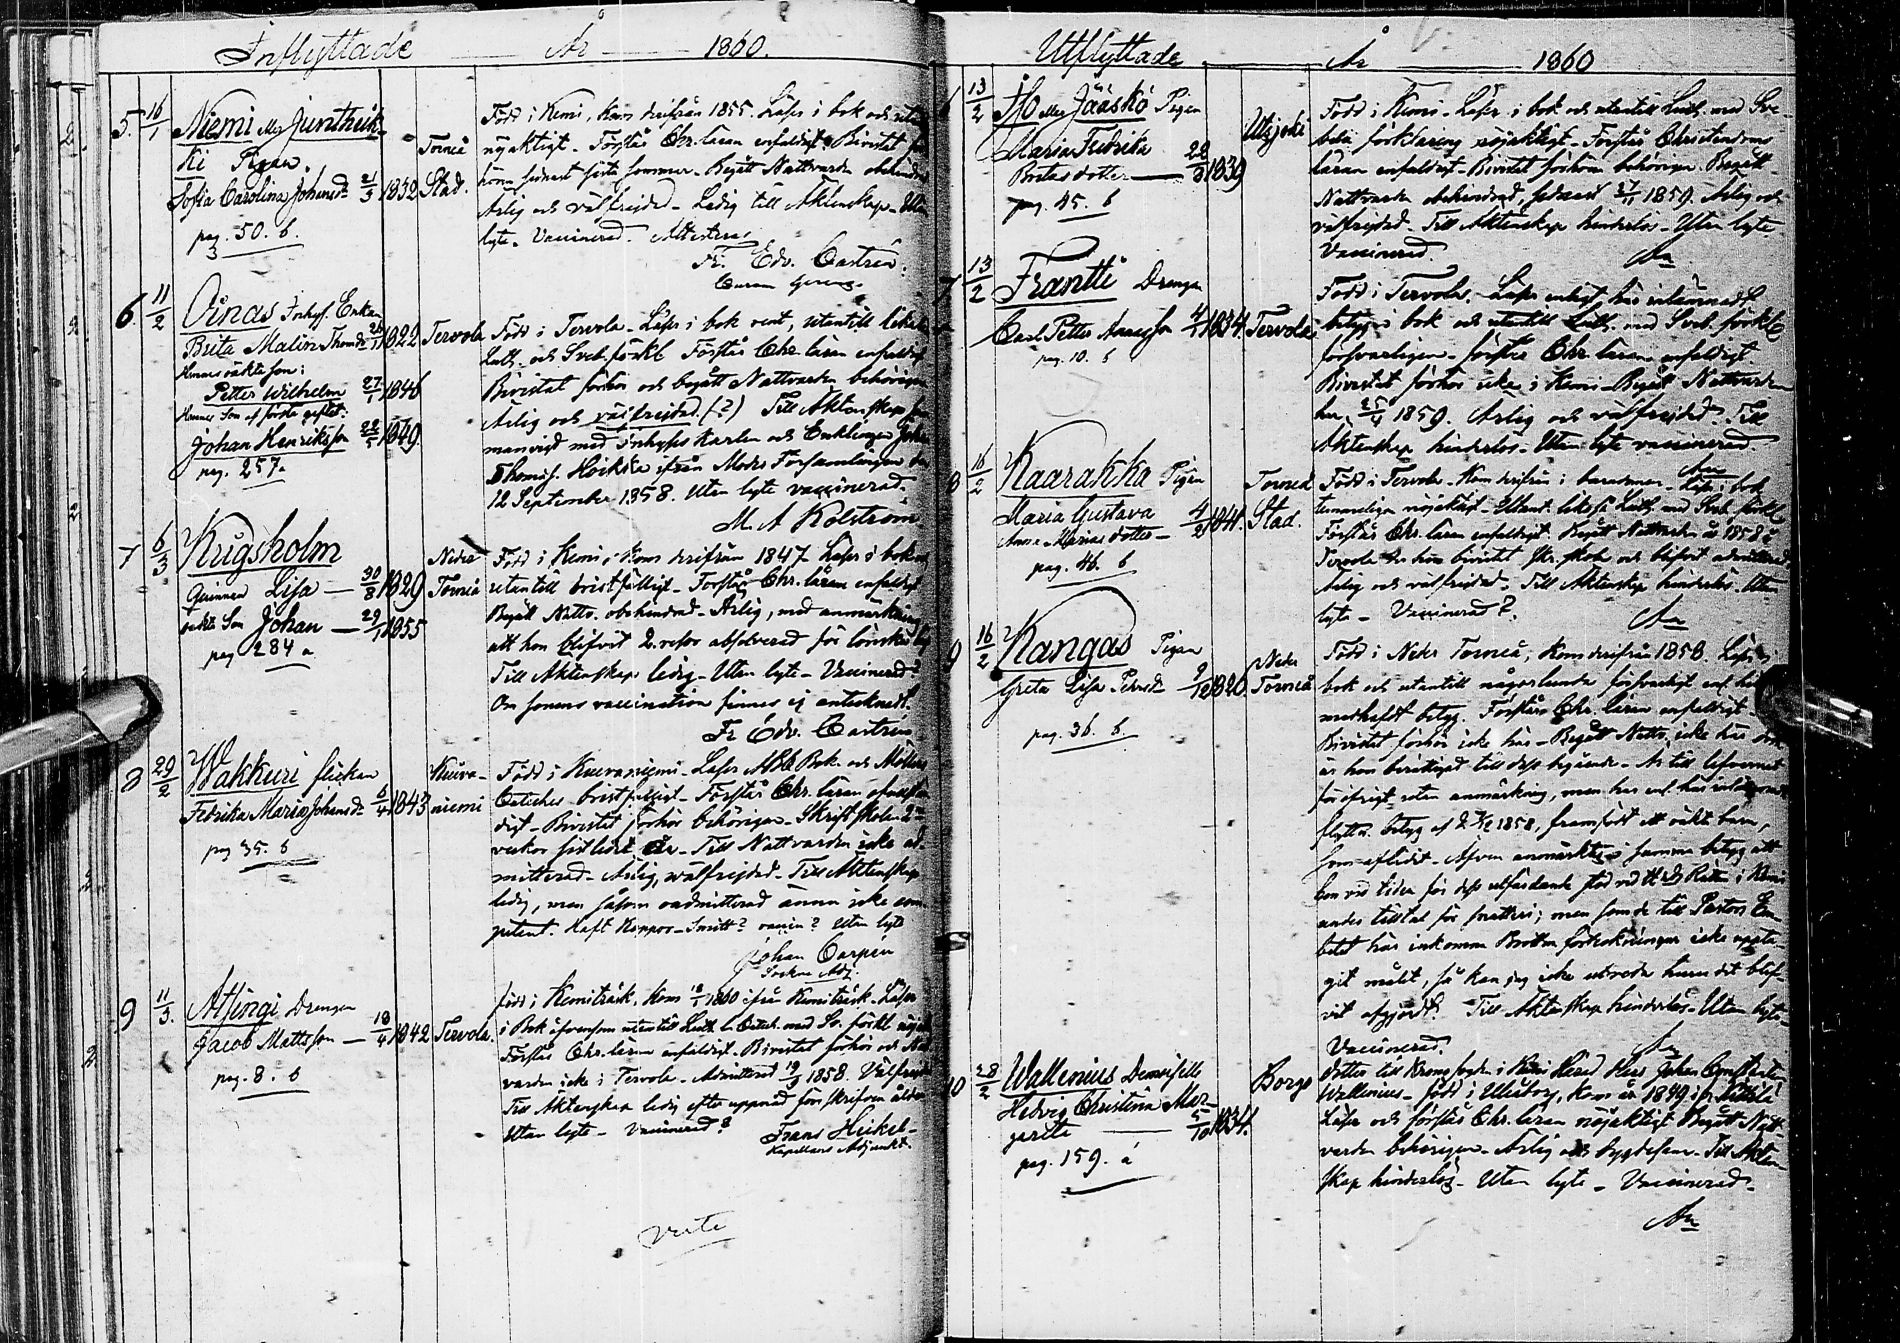 Inflyttade År 1860.
5. 16/1 Niemi eller Junthik-
ki Pigan
Sofia Carolina Johansd. 21/3 1832
pag. 50. b.
Torneå
Stad.
Född i Kemi, kom derifrån 1855. Läser i bok och utan
nöjaktigt. Förstår Chr. läran enfaldigt. Bivistat
sednast sista sommar. Begått Nattvarden obehindrad
Ärlig och välfrejdad. Ledig till Äktenskap. Utan
lyte. Vaccinerad. Attesteras
Fr. Edv. Castrén.
6. 11/2 Oinas Inhys. Enkan
Brita Malin Thomd. 1822
Hennes oäkta son:
Petter Wilhelm 27/1 1846
Hennes Son af första giftet:
Johan Henriksson 1849.
pag. 257.
Tervola
Född i Tervola. Läser i bok rent, utantill
Luth. och Sveb. förkl. Förstår Chr. läran enfaldigt
Bivistat förhör och begått Nattvarden behörigen
Ärlig och välfrejdad. (?) Till Äktenskap
manvigd med Inhyses karlen och Enklingen Johan
Thomass. Heikka ifrån Moder Församlingen den
12 September 1858. Utan lyte vaccinerad.
M. A Kolström
7 6/3 Krigsholm
Quinnan Lisa 30/8 1829
oäkta Son Johan 29/1 1855
pag 284 a
Neder
Torneå
Född i Kemi, kom derifrån 1847. Läser i bok
utantill bristfälligt. Förstår Chr. läran enfaldigt
Begått Nattv. obehindrad. Ärlig, med anmärkning
att hon blifvit 2. resor absolverad för lönskaläge
Till Äktenskap ledig. Utan lyte. Vaccinerad?
Om sonens vaccination finnes ej antecknadt.
Fr. Edv. Castrén
8 29/2 Wakkuri flickan
Fedrika Maria Johansd. 6/4 1843
pag 35. b
Kuiva-
niemi
Född i Kuivaniemi. Läser ABC Bok och Möllers
Cateches bristfälligt. Förstår Chr. läran
digt. Bivistat förhör behörigen. Skriftskolan 2
veckor sistlidet år. Till Nattvarden icke ad-
mitterad. Ärlig, wälfrejdad. Till Äktenskap
ledig, men såsom oadmitterad ännu icke com-
petent. Haft Koppor. Smitt? vaccin? Utan lyte
Johan Carpén
Sockne Adj.
9 11/3. Alsingi Drengen
Jacob Mattsson 18/4 1842
pag. 8. b
Tervola.
född i Kemiträsk, kom 1860 ifrån Kemiträsk. Läser
i Bok äfvensom utantill Luth. l. Catech. med Sv. förkl.
Förstår Chr. läran enfaldigt. Bivistat förhör och Natt-
varden icke i Tervola. Admitterad 1858. Välfrejdad
Till Äktenskap ledig efter uppnåd föreskrifven ålder
Utan lyte. Vaccinerad?
Frans Heikel
Kapellans Adjunkt.
verte
Utflyttade År 1860
6 13/2 Iso eller Jääskö Pigan
Maria Fredrika
Britasdotter 22/8 1839
pag. 45. b
Utsjoki
Född i Kemi. Läser i bok och utantill Luth. med Sve-
belii förklaring nöjaktigt. Förstår Christendoms
läran enfaldigt. Bivistat förhören behörigen. Begått
Nattvarden obehindrad, sednast 1859. Ärlig och
välfrejdad. Till Äktenskap hinderlös. Utan lyte
Vaccinerad.
7 13/2 Frantti Drengen
Carl Petter 1834.
pag. 10. b
Tervola
Född i Tervola. Läser enligt här inlemnadt
betyg i bok och utantill Luth. med Sveb. förkl.
försvarligen. förstår Chr. läran enfaldigt
Bivistat förhör icke i Kemi. Begått Nattvarden
här 25/4 1859. Ärlig och välfrejdad. Till
Äktenskap hinderlös. Utan lyte vaccinerad.
8 16/2 Kaarakka Pigan
Maria Gustava
Anna Mariasdotter 4/2 1841.
pag. 46. b
Torneå
Stad.
Född i Tervola. Kom derifrån i barndomen. Läser i bok
temmeligen nöjaktigt. Utant. likaså Luth. med Sveb. förkl.
Förstår Chr. läran enfaldigt. Begått Nattvarden år 1858 i
Tervola der hon bivistat Skr. skola och blifvit admitterad
Ärlig och välfrejdad. Till Äktenskap hinderlös. Utan
lyte. Vaccinerad?
9 16/2 Kangas Pigan
Greta Lisa 9/12 1826.
pag. 36. b.
Neder
Torneå
Född i Neder Torneå, kom derifrån 1858. Läser i
bok och utantill någorlunda försvarligt enl. hit
medhafdt betyg. Förstår Chr. läran enfaldigt
Bivistat förhör icke här. Begått Nattv. icke här
är hon berättigad till dess begående. Är till lefvernet
för öfrigt utan anmärkning, men har enl. här inlemnadt
flyttn. betyg af 1858, framfödt ett oäkta barn,
som aflidit. Äfven anmärktes i samma betyg att
hon vid tiden för dess utfärdande stod vid Hds Rätten i Kemi
under tilltal för snatteri; men som de till Pastors Em-
betet här inkomna Brottm. förteckningar icke uppta-
git målet, så kan jag icke utreda huru det blif-
vit afgjordt. Till Äktenskap hinderlös. Utan lyte.
Vaccinerad.
10 28/2 Wallenius Demoiselle
Hedvig Christina Mar-
gareta 5/10 1834.
pag. 159. a
Borgo
Dotter till Kronofogden i Kemi Härad Herr Johan Constantin
Wallenius. född i Uleåborg, kom år 1849 ifr. Kittilä
Läser och förstår Chr. läran nöjaktigt. Begått Natt-
varden behörigen. Ärlig och dygdesam. Till Äkten-
skap hinderlös. Utan lyte. Vaccinerad.